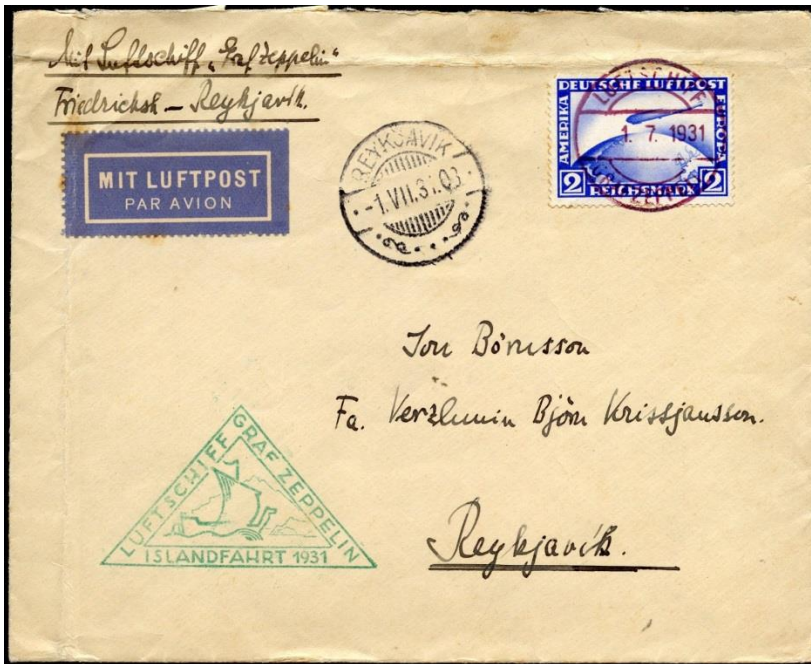 Mit Luftschiff „Graf Zeppelin"
Friedrichsh – Reykjavik.
MIT LUFTPOST
PAR AVION
REYKJAVIK
-1.VII.31.
DEUTSCHE LUFTPOST
AMERIKA
EUROPA
2 REICHSMARK 2
LUFTSCHIFF
1. 7. 1931
GRAF ZEPPELIN
Jon Börnsson
Fa. Verzlunin Björn Kristjansson.
Reykjavik.
LUFTSCHIFF GRAF ZEPPELIN
ISLANDFAHRT 1931